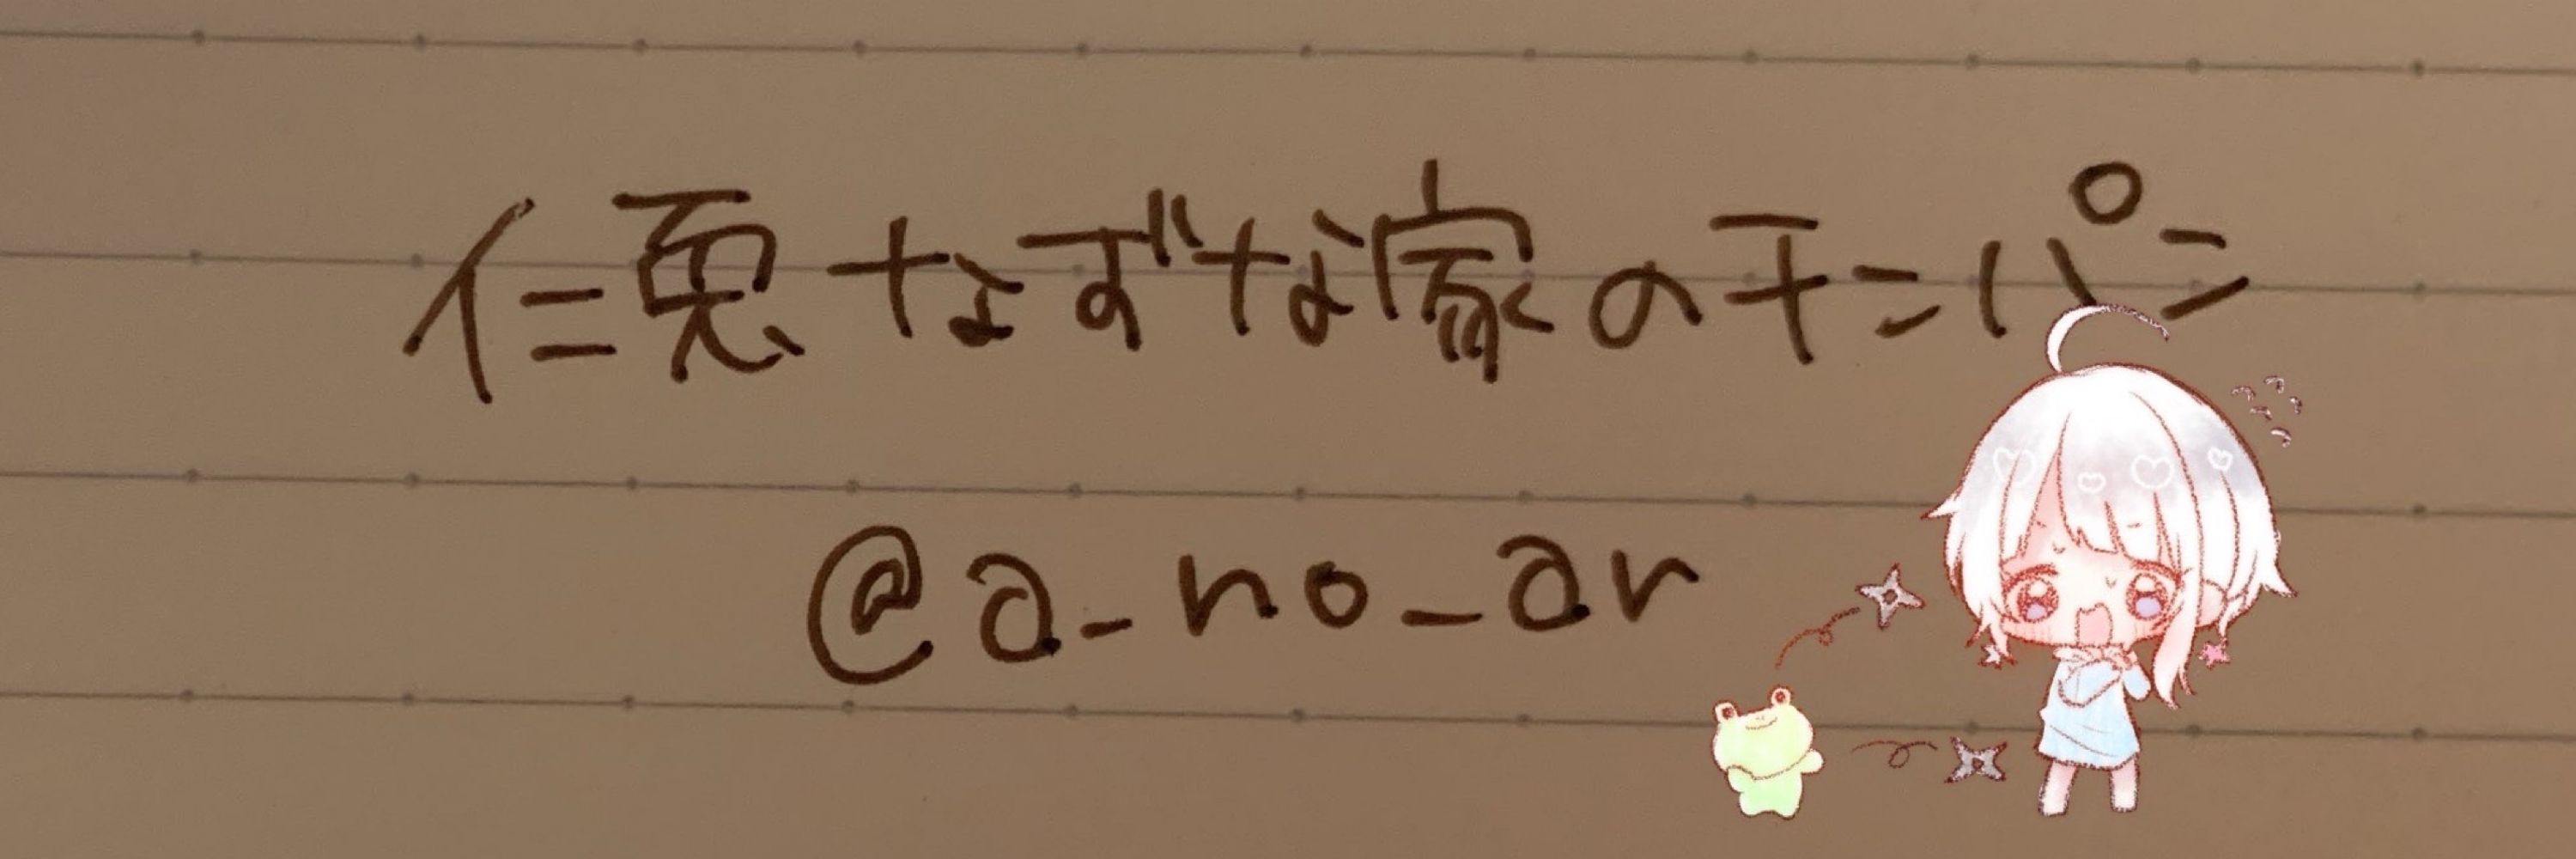 仁兎なずな家のチンパン
@a_no_an